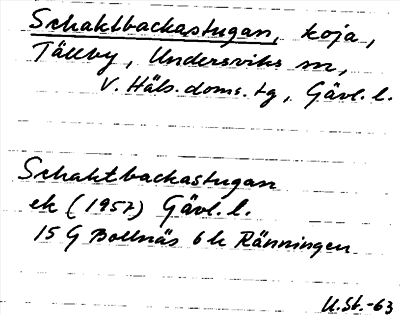 Schaktbackastugan, koja,
Tällby, Undersviks sn,
V. Häls. doms. tg, Gävl. l.
Schaktbackastugan
ek (1957) Gävl. l.
15 G Bollnäs 6 h Ränningen
U.St.-63